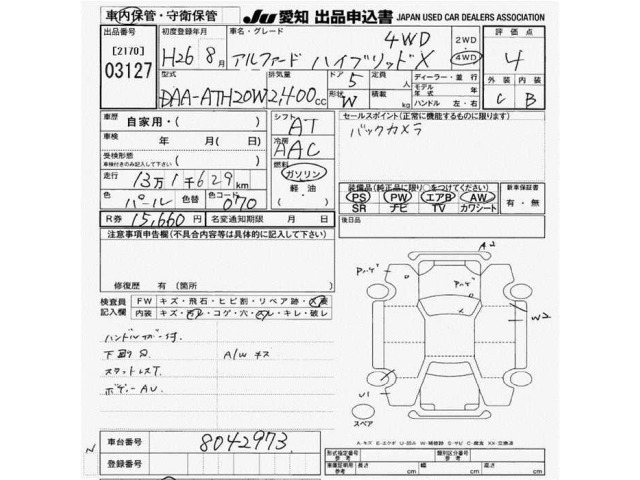 車内保管・守衛保管
JU 愛知 出品申込書 JAPAN USED CAR DEALERS ASSOCIATION
出品番号 初度登録年月 車名・グレード 4WD 2WD 評価点
[2170] 03127 H26 8月 アルファード ハイブリッド X 4WD 4
型式 排気量 ドア 5 定員 人 ディーラー・並行 外装 内装
DAA-ATH20W 2,400cc 形状 W 積載 kg モデル年式 年 ハンドル 左・右 C B
車歴 自家用・( ) シフト AT セールスポイント(正常に機能するものに限ります)
車検 年 月(日) 冷房 AAC バックカメラ
受検形態 車検付きのみ記入して下さい ( ) 燃料
走行 13万1千629km ガソリン 装備品(純正品に限り○をつけてください) 新車保証書
色 パール 色替 色コード 070 軽油 PS PW エアB AW 有・無
( ) SR ナビ TV カワシート
R券 15,660円 名変通知期限 月 日 後日品
注意事項申告欄(不具合内容等は具体的に記入して下さい)
A2
修復歴 有(箇所 )
検査員記入欄 FW キズ・飛石・ヒビ割・リペア跡・
内装 キズ・コゲ・穴・スレ・キレ・破レ
W2
下回りサ A/W キズ
スタットレスT
ボデーAU
U1
スペア
A-キズ E-エクボ U-凹ミ W-補修跡 S-サビ C-腐食 XX-交換済
車台番号 8042973
型式指定番号 参考 類別区分番号 参考
登録番号 車庫証明用 参考 長さ cm 幅 cm 高さ cm